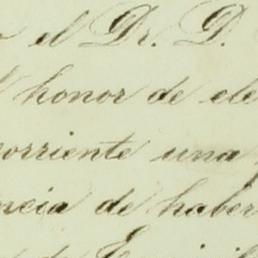 el Dr. D.
honor de ele
corriente una
ncia de haber
de